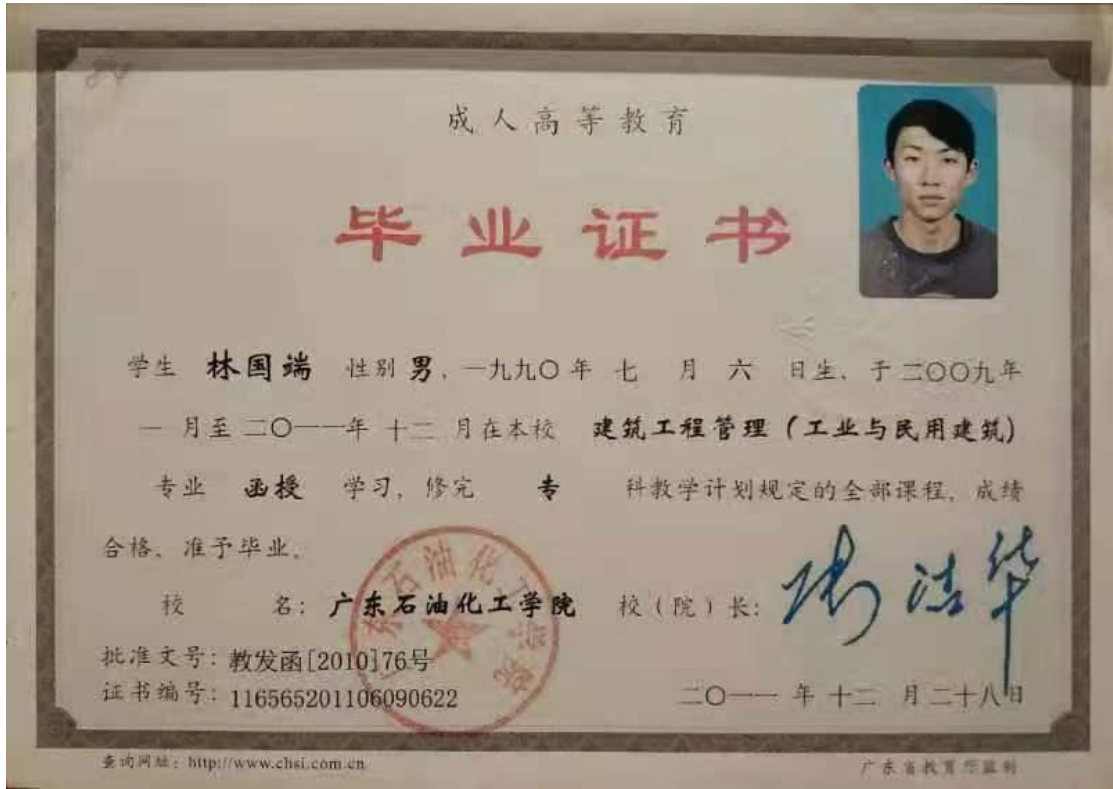 成人高等教育
毕业证书
学生 林国端 性别 男、一九九〇年 七 月 六 日生、于二〇〇九年
一 月至二〇一一年 十二 月在本校 建筑工程管理（工业与民用建筑）
专业 函授 学习，修完 专 科教学计划规定的全部课程，成绩
合格，准予毕业。
校 名：广东石油化工学院 校（院）长：
批准文号：教发函[2010]76号
证书编号：116565201106090622
二〇一一 年 十二 月二十八日
查询网址：http://www.chsi.com.cn
广东省教育厅监制